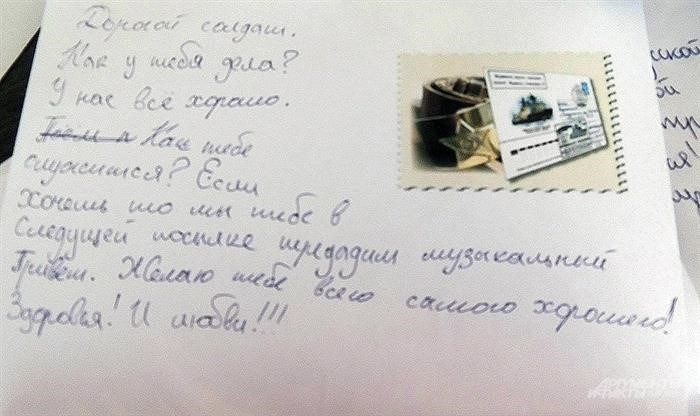 Дорогой солдат.
Как у тебя дела?
У нас всё хорошо.
Как тебе
служится? Если
хочешь то мы тебе в
следущей посылке передадим музыкальный
Привет. Желаю тебе всего самого хорошего!
Здоровья! И любви!!!
ской
ой
АРГУМЕНТЫ
И ФАКТЫ